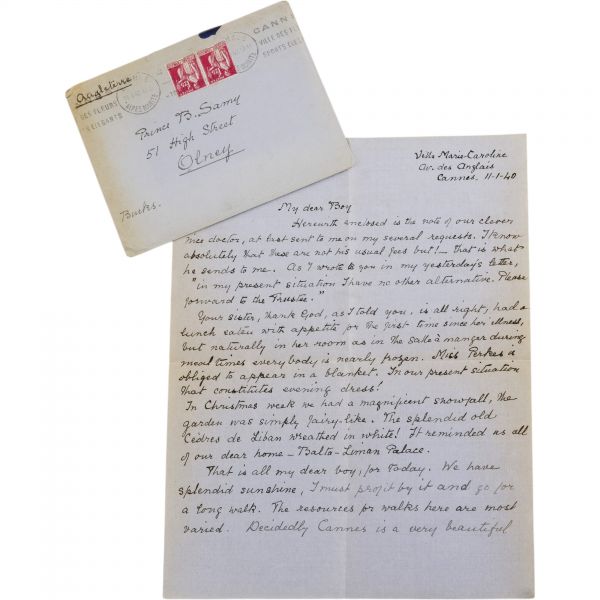 Angleterre
CANN
VILLE DES FL
SPORTS ELEG
DES FLEURS
ELEGANTS
ALPES MARITIMES
Prince B. Samy
51 High Street
Olney
Bucks.
Villa Marie-Caroline
Av. des Anglais
Cannes. 11-1-40
My dear Boy
Herewith enclosed is the note of our clever
nice doctor, at last sent to me on my several requests. I know
absolutely that these are not his usual fees but!— that is what
he sends to me. As I wrote to you in my yesterday's letter,
"in my present situation I have no other alternative. Please
forward to the Trustee."
Your sister, thank God, as I told you, is all right, had a
lunch eaten with appetite for the first time since her illness,
but naturally in her room as in the Salle à manger during
meal times everybody is nearly frozen. Miss Perkes is
obliged to appear in a blanket. In our present situation
that constitutes evening dress!
In Christmas week we had a magnificent snowfall, the
garden was simply fairy-like. The splendid old
Cèdres de Liban wreathed in white! It reminded us all
of our dear home – Balta-Liman Palace.
That is all my dear boy, for today. We have
splendid sunshine, I must profit by it and go for
a long walk. The resources for walks here are most
varied. Decidedly Cannes is a very beautiful